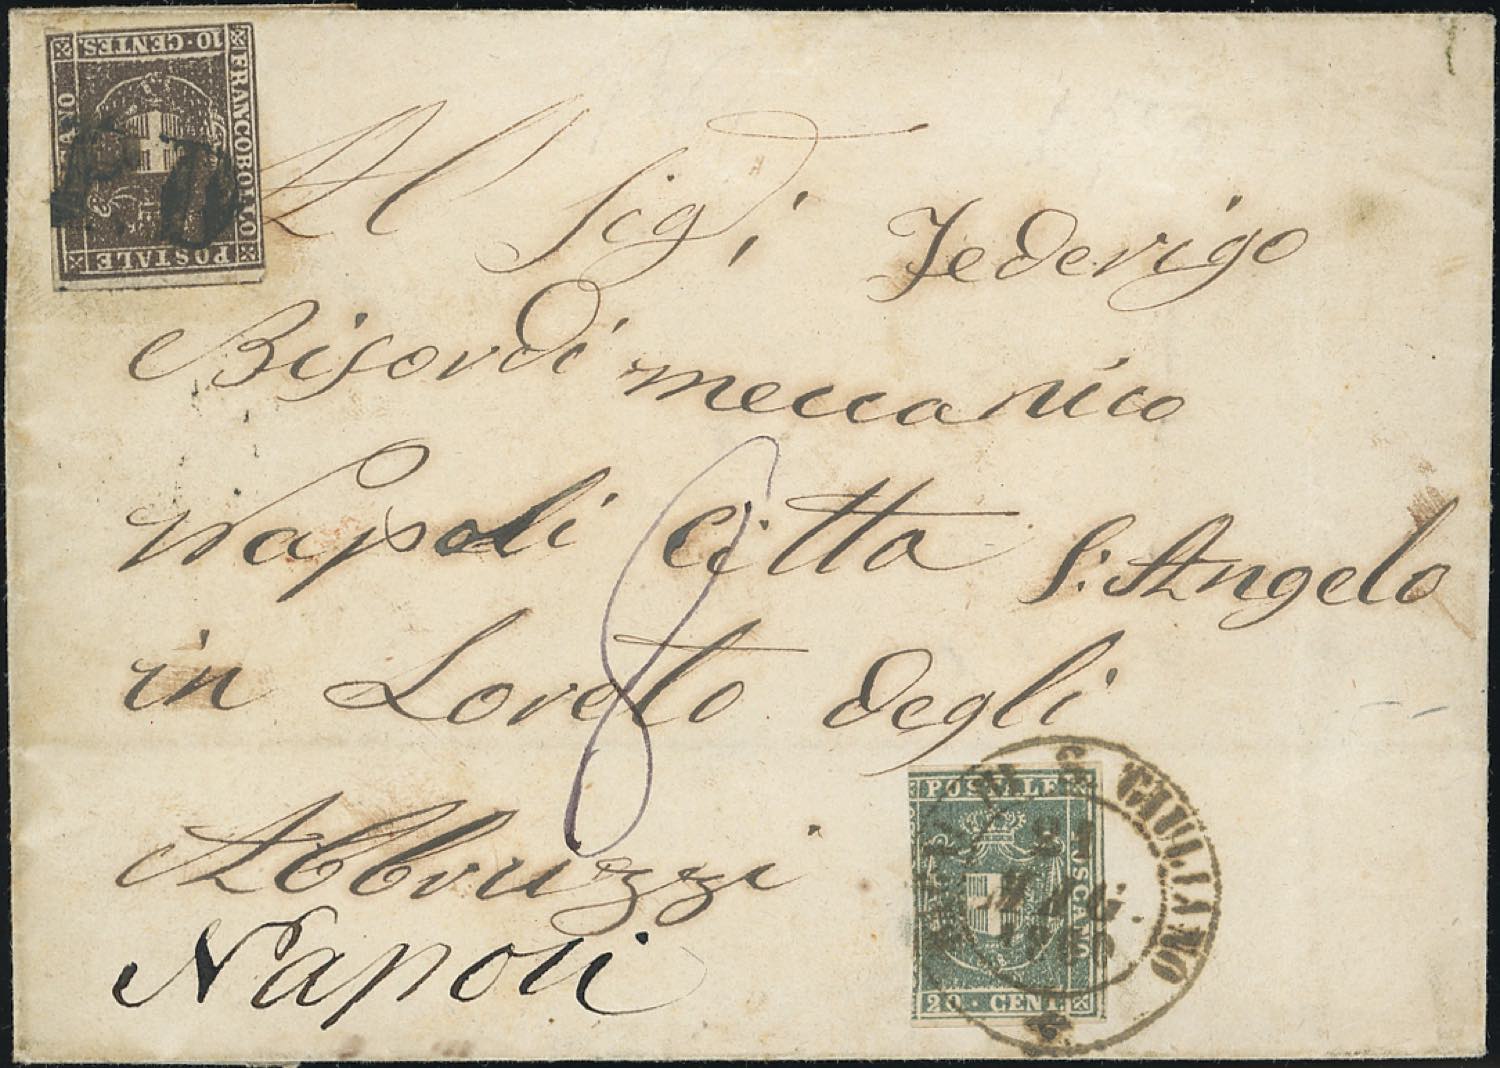 10 · CENTES.
FRANCOBOLLO
POSTALE
P. D.
Al Sig.r Federigo
Bisordi meccanico
Napoli Citta S. Angelo
in Loreto degli
Abbruzzi
Napoli
8
POSTALE
TOSCANO
20 · CENT.
S. GIULIANO
MAG.
1860